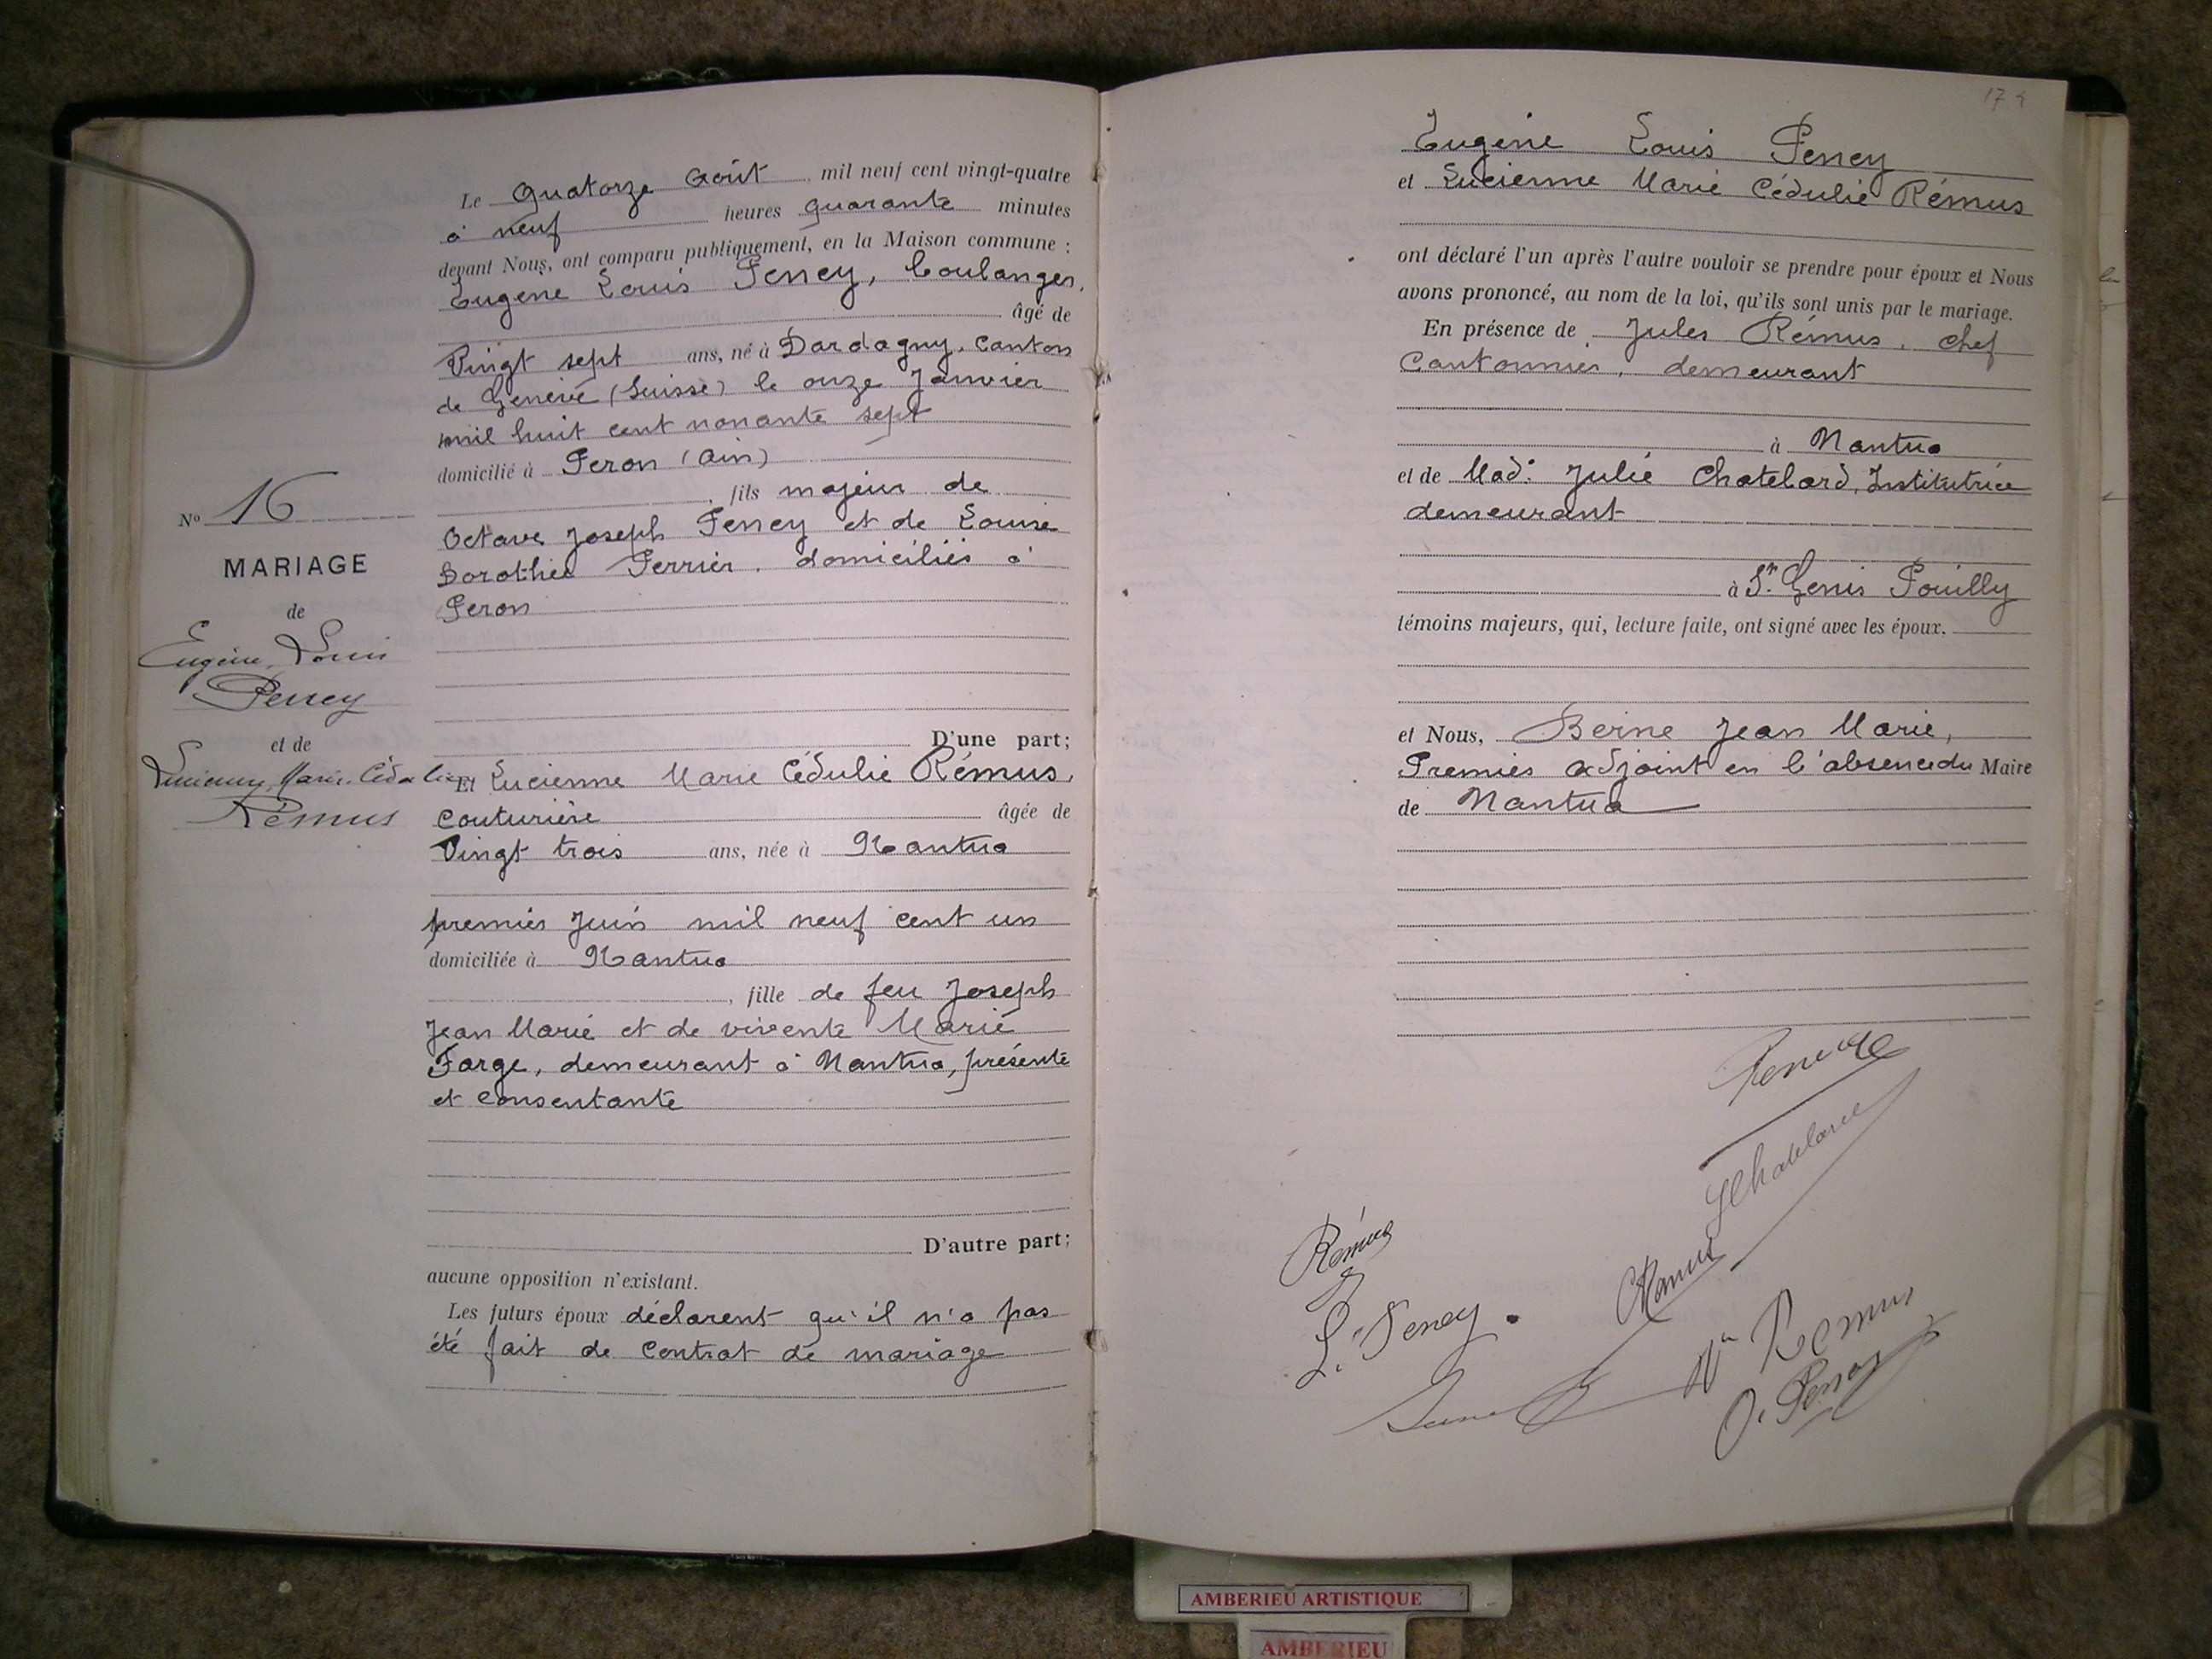 N° 16
MARIAGE
de
Eugène Louis
Perrey
et de
Lucienne Marie Cédulie
Rémus
Le Quatorze Août mil neuf cent vingt-quatre
à neuf heures quarante minutes
devant Nous, ont comparu publiquement, en la Maison commune :
Eugène Louis Perrey, boulanger,
âgé de
Vingt sept ans, né à Dardagny, Canton
de Genève (Suisse) le onze Janvier
mil huit cent nonante sept
domicilié à Peron (Ain)
, fils majeur de
Octave Joseph Perrey et de Louise
Dorothée Perrier, domiciliés à
Peron
D'une part;
Et Lucienne Marie Cédulie Rémus,
Couturière âgée de
Vingt trois ans, née à Nantua
premier Juin mil neuf cent un
domiciliée à Nantua
, fille de feu Joseph
Jean Marie et de vivente Marie
Farge, demeurant à Nantua, présente
et Consentante
D'autre part;
aucune opposition n'existant.
Les futurs époux déclarent qu'il n'a pas
été fait de Contrat de mariage
174
Eugène Louis Perrey
et Lucienne Marie Cédulie Rémus
ont déclaré l'un après l'autre vouloir se prendre pour époux et Nous
avons prononcé, au nom de la loi, qu'ils sont unis par le mariage.
En présence de Jules Rémus, chef
Cantonnier, demeurant
à Nantua
et de Mad: Julie Chatelard, Institutrice
demeurant
à St. Genis Pouilly
témoins majeurs, qui, lecture faite, ont signé avec les époux.
et Nous, Berne Jean Marie,
Premier adjoint en l'absence du Maire
de Nantua
J Chatelard
Rémus
Remus
L. Perrey
Vve Remus
O. Perrey
AMBERIEU ARTISTIQUE
AMBERIEU